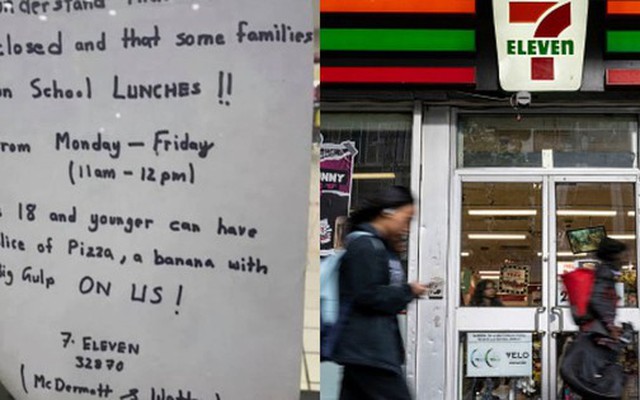 nderstand
closed and that some families
on School LUNCHES !!
rom Monday - Friday
(11am - 12pm)
s 18 and younger can have
lice of Pizza, a banana with
ig Gulp ON US!
7-ELEVEN
32870
(McDermott &
7
ELEVEN
NNY
VELO